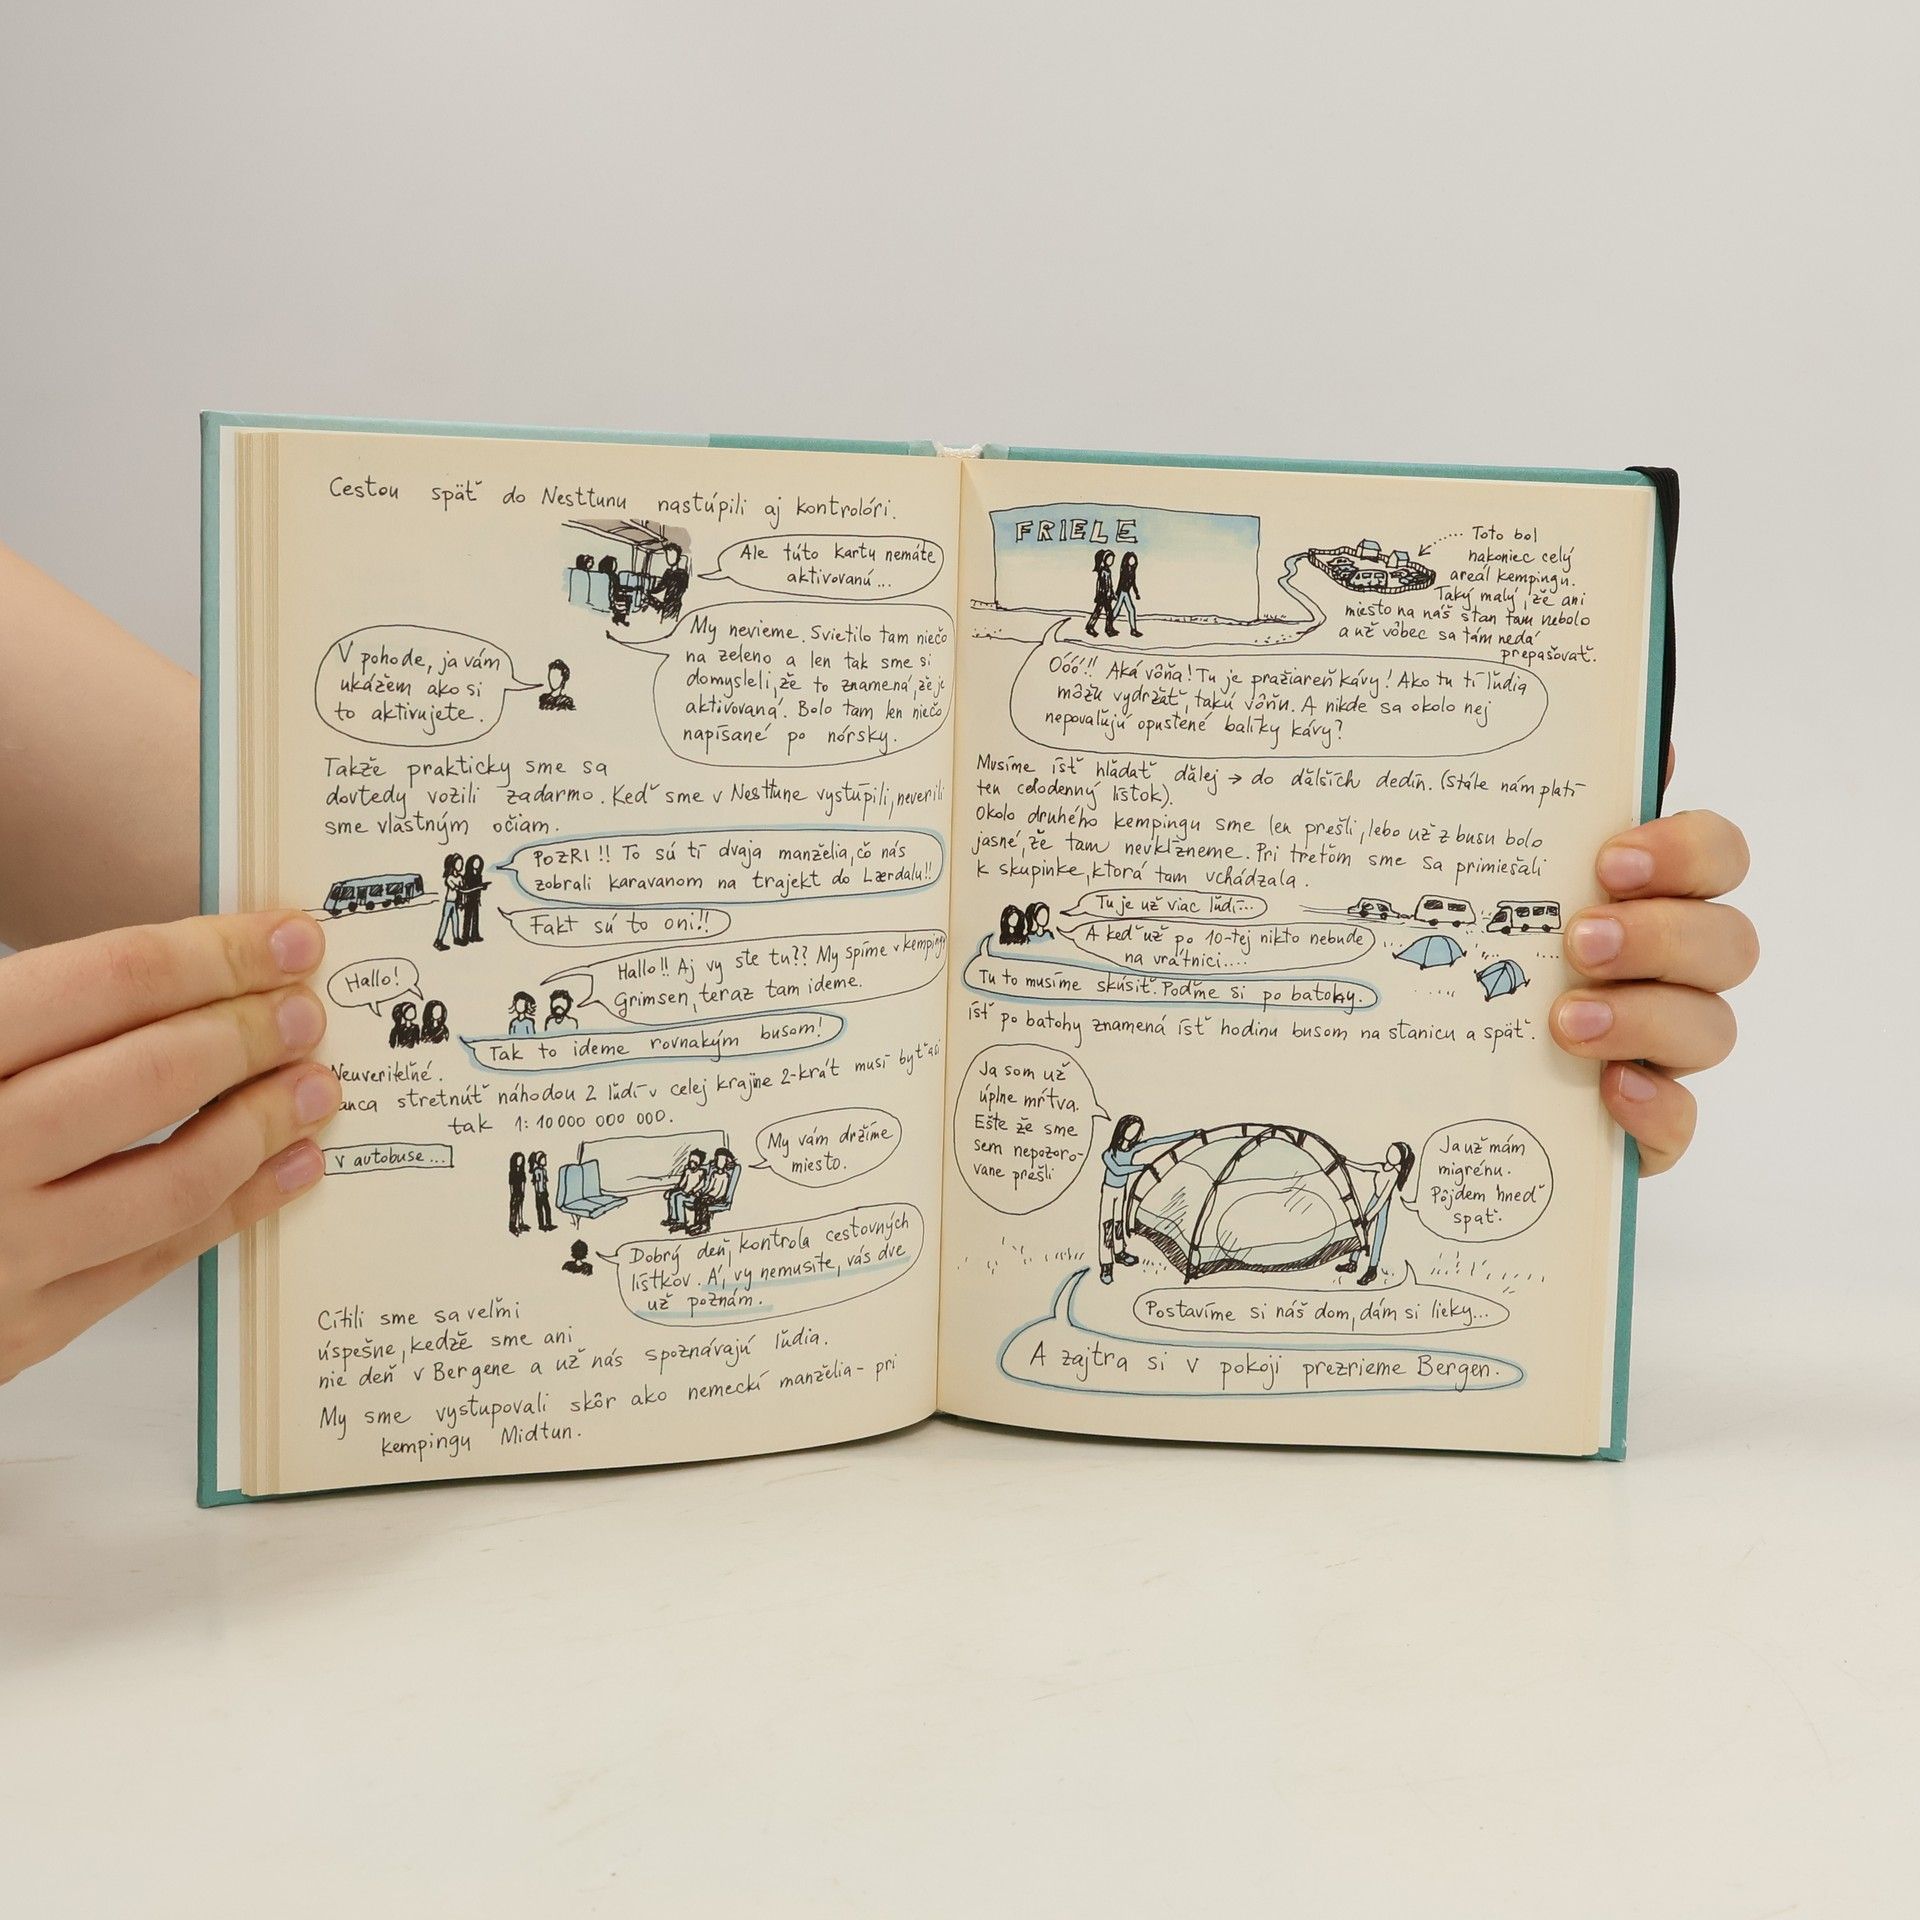 Cestou späť do Nesttunu nastúpili aj kontrolóri.
Ale túto kartu nemáte
aktivovanú...
My nevieme. Svietilo tam niečo
na zeleno a len tak sme si
domysleli, že to znamená, že je
aktivovaná. Bolo tam len niečo
napísané po nórsky.
V pohode, ja vám
ukážem ako si
to aktivujete.
Takže prakticky sme sa
dovtedy vozili zadarmo. Keď sme v Nesttune vystúpili, neverili
sme vlastným očiam.
POZRI!! To sú tí dvaja manželia, čo nás
zobrali karavanom na trajekt do Lærdalu!!
Fakt sú to oni!!
Hallo!
Hallo!! Aj vy ste tu?? My spíme v kempingu
Grimsen, teraz tam ideme.
Tak to ideme rovnakým busom!
Neuveriteľné.
anca stretnúť náhodou 2 ľudí v celej krajine 2-krát musí byť asi
tak 1:10000 000 000.
v autobuse...
My vám držíme
miesto.
Dobrý deň, kontrola cestovných
lístkov. Á, vy nemusíte, vás dve
už poznám.
Cítili sme sa veľmi
úspešne, kedže sme ani
nie deň v Bergene a už nás spoznávajú ľudia.
My sme vystupovali skôr ako nemeckí manželia - pri
kempingu Midtun.
FRIELE
Toto bol
nakoniec celý
areál kempingu.
Taký malý, že ani
miesto na náš stan tam nebolo
a už vôbec sa tam nedá
prepašovať.
Óóó!! Aká vôňa! Tu je pražiareň kávy! Ako tu tí ľudia
môžu vydržať, takú vôňu. A nikde sa okolo nej
nepovaľujú opustené balíky kávy?
Musíme ísť hľadať ďalej → do ďalších dedín. (Stále nám platí
ten celodenný lístok).
Okolo druhého kempingu sme len prešli, lebo už z busu bolo
jasné, že tam nevkĺzneme. Pri treťom sme sa primiešali
k skupinke, ktorá tam vchádzala.
Tu je už viac ľudí...
A keď už po 10-tej nikto nebude
na vrátnici....
Tu to musíme skúsiť. Poďme si po batohy.
Ísť po batohy znamená ísť hodinu busom na stanicu a späť.
Ja som už
úplne mŕtva.
Ešte že sme
sem nepozoro-
vane prešli
Ja už mám
migrénu.
Pôjdem hneď
spať.
Postavíme si náš dom, dám si lieky...
A zajtra si v pokoji prezrieme Bergen.